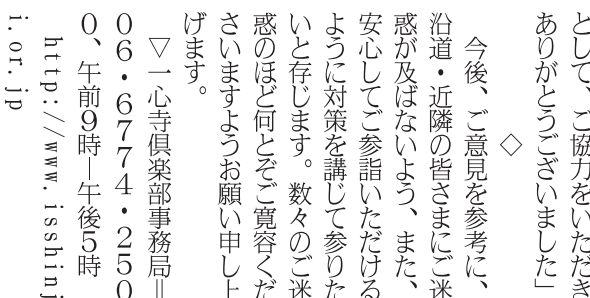 として、ご協力をいただき
ありがとうございました」
◇
今後、ご意見を参考に、
沿道・近隣の皆さまにご迷
惑が及ばないよう、また、
安心してご参詣いただける
ように対策を講じて参りた
いと存じます。数々のご迷
惑のほど何とぞご寛容くだ
さいますようお願い申し上
げます。
▽一心寺倶楽部事務局＝
０６・６７７４・２５０
０、午前９時―午後５時
http://www.isshinj
i.or.jp